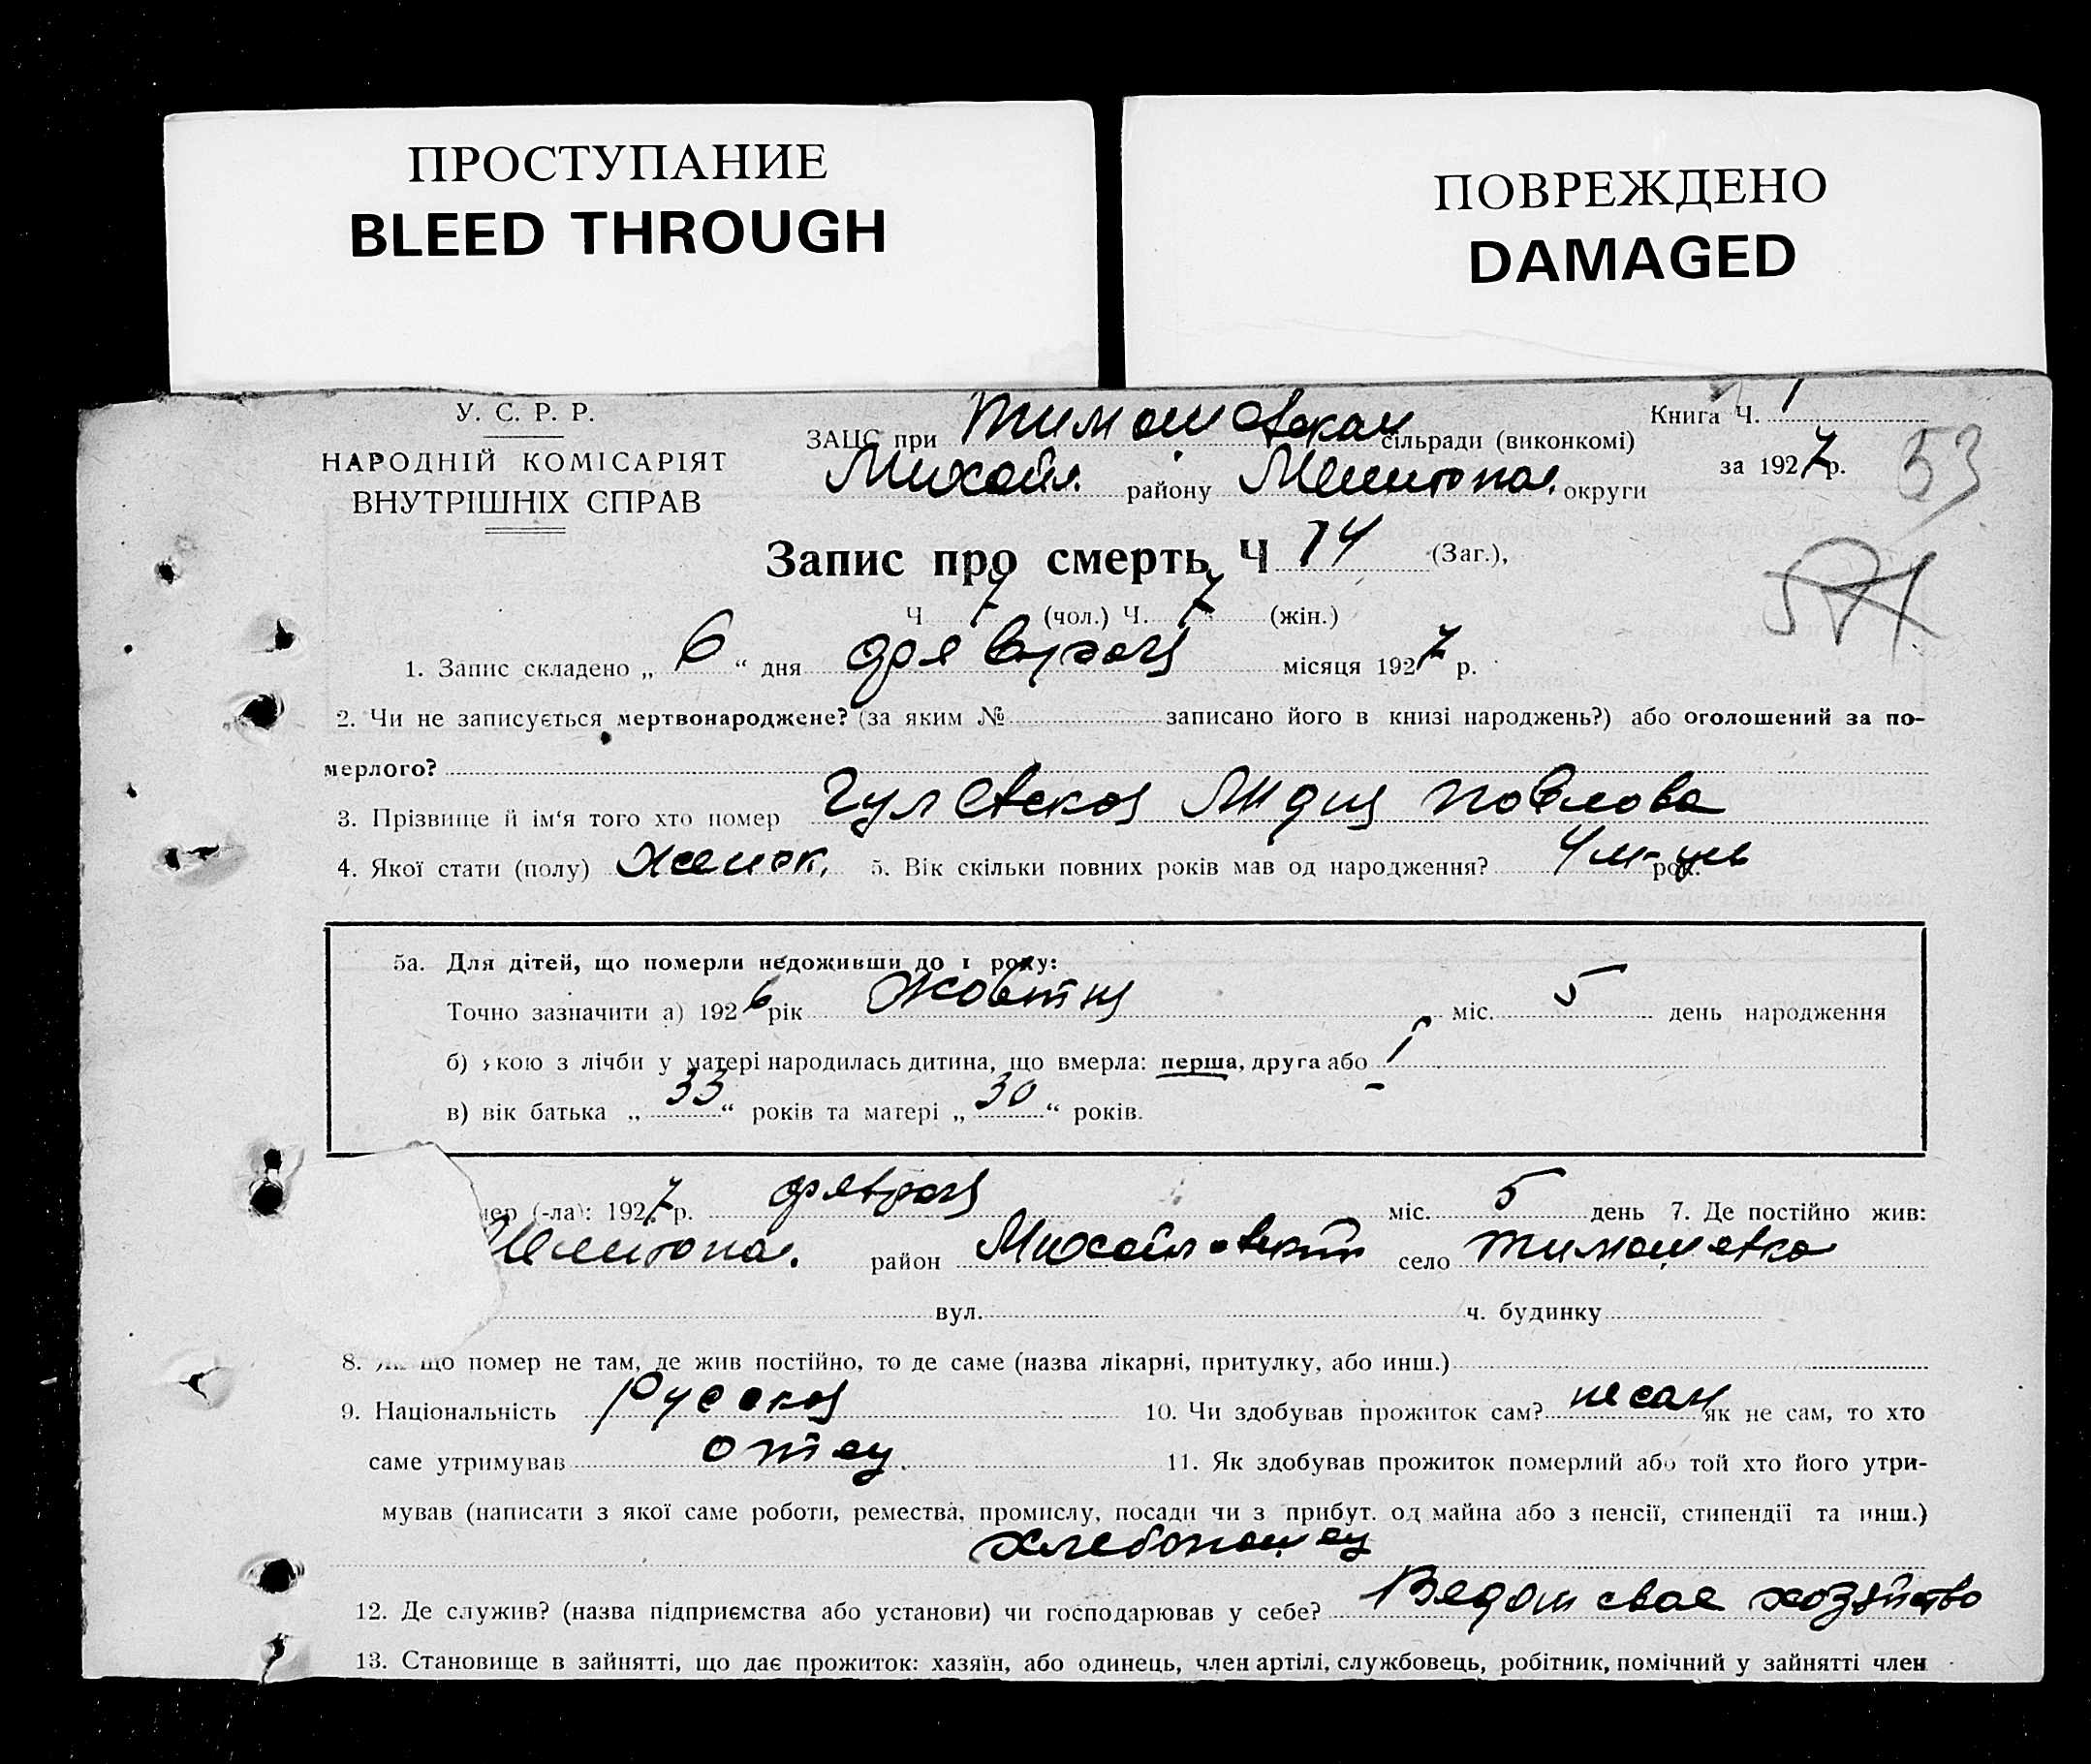 ПРОСТУПАНИЕ
BLEED THROUGH
ПОВРЕЖДЕНО
DAMAGED
У. С. Р. Р.
НАРОДНІЙ КОМІСАРІЯТ
ВНУТРІШНІХ СПРАВ
Книга Ч. 1
ЗАЦС при Тимошевской сільради (виконкомі)
за 1927 р.
53
Михайл. району Мелитопол. округи
Запис про смерть Ч 14 (Заг.),
Ч 7 (чол.) Ч. 7 (жін.)
574
1. Запис складено „ 6 “ дня февраля місяця 1927 р.
2. Чи не записується мертвонароджене? (за яким № записано його в книзі народжень?) або оголошений за по-
мерлого?
3. Прізвище й ім'я того хто помер Гулевская Лидия Павлова
4. Якої стати (полу) женск. 5. Вік скільки повних років мав од народження? 4 м-ць рок.
5а. Для дітей, що померли недоживши до 1 року:
Точно зазначити а) 1926 рік Жовтня міс. 5 день народження
б) якою з лічби у матері народилась дитина, що вмерла: перша, друга або 1
в) вік батька „ 33 “ років та матері „ 30 “ років.
мер (-ла): 1927 р. февраля міс. 5 день 7. Де постійно жив:
Мелитопол. район Михайловский село Тимошевка
вул. ч. будинку
8. що помер не там, де жив постійно, то де саме (назва лікарні, притулку, або инш.)
9. Національність русская 10. Чи здобував прожиток сам? не сам як не сам, то хто
саме утримував отец. 11. Як здобував прожиток померлий або той хто його утри-
мував (написати з якої саме роботи, ремества, промислу, посади чи з прибут. од майна або з пенсії, стипендії та инш.)
хлебопашец
12. Де служив? (назва підприємства або установи) чи господарював у себе? Ведот свое хозяйство
13. Становище в зайнятті, що дає прожиток: хазяїн, або одинець, член артілі, службовець, робітник, помічний у зайнятті член